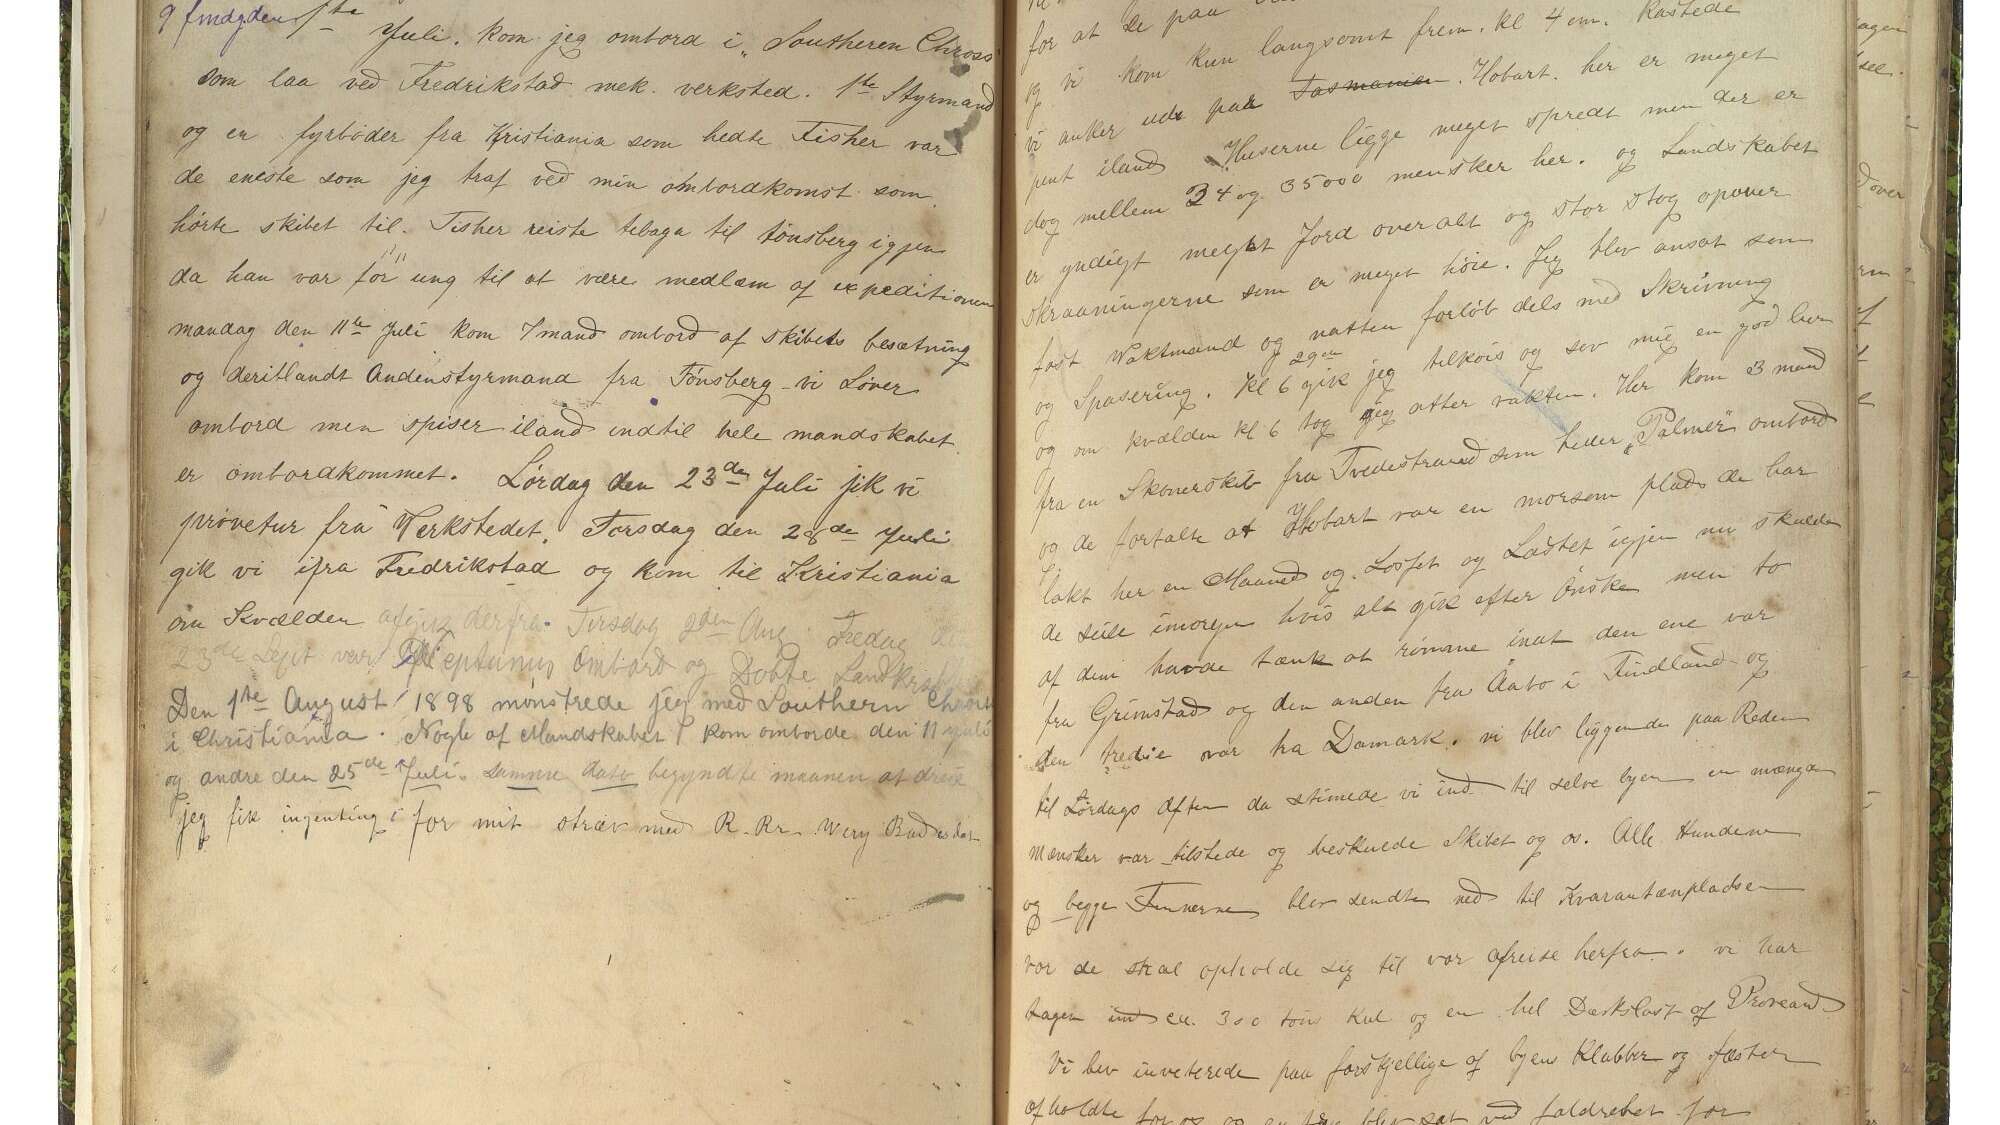 9 fmdg den 1ste Juli. kom jeg ombord i „Southeren Chross"
som laa ved Fredrikstad mek. verksted. 1ste Styrmand
og en fyrbøder fra Kristiania som hedte Fisher var
de eneste som jeg traf ved min ombordkomst som
hørte skibet til. Fisher reiste tebaga til tønsberg igjen
da han var for ung til at være medlæm af expeditionen
mandag den 11te Juli kom 7 mand ombord af skibets besætning
og deriblandt Andenstyrmand fra Tønsberg vi Sover
ombord men spiser iland indtil hele mandskabet
er ombordkommet. Lørdag den 23de Juli fik vi
prøvetur fra Verkstedet. Torsdag den 28de Juli
gik vi ifra Fredrikstad og kom til Kristiania
om Kvælden afgik derfra Tirsdag 2den Aug Fredag
23de Sept var Neptunus Ombord og Døbte Landkrabber
Den 1ste August 1898 mønstrede jeg med Southern Chross
i Christiania. Nogle af Mandskabet kom omborde den 11 juli
og andre den 25de Juli. samme dato begyndte maanen at dreie
jeg fik ingenting i for mit stræv med R. Kr. Wery Bad
for at de paa
og vi kom kun langsomt frem. kl 4 em. Kastede
vi anker ude paa Tasmanien. Hobart. her er meget
pent iland Huserne ligge meget spredt men der er
dog mellem 34 og 35000 mensker her. og Landskabet
er yndigt meget Jord over alt og stor skog opover
skraaningerne som er meget høie. Jeg blev ansat som
fast Vaktmand og natten forløb dels med Skrivning
og Spasering. Kl 6 29en gik jeg tilkøis og sov mig en god lur
og om kvælden kl 6 tog jeg atter vakten. Her kom 3 mand
fra en Skonerskib fra Tvedestrand som heder „Palmer" ombord
og de fortalte at Hobart var en morsom plads de har
lakt her en Maaned og Losset og Ladtet igjen nu skulde
de seile imorgen hvis alt gik efter Ønske men to
af dem havde tænk at rømme inat den ene var
fra Grimstad og den anden fra Aabo i Findland og
den tredie var fra Damark. vi blev liggende paa Reden
til Lørdags Aften da stimede vi ind til selve byen en mængde
mænsker var tilstede og beskuede Skibet og os. Alle Hundene
og begge Finnerne blev sendte ned til Kvarantænpladsen
vor de skal opholde sig til vor afreise herfra. vi har
tagen ind ca. 300 tons Kul og en hel Dækslast af Proveand
Vi blev inveterede paa forskjellige af byens Klubber og fæster
afholdte for os og en blev sat ved faldrebet for